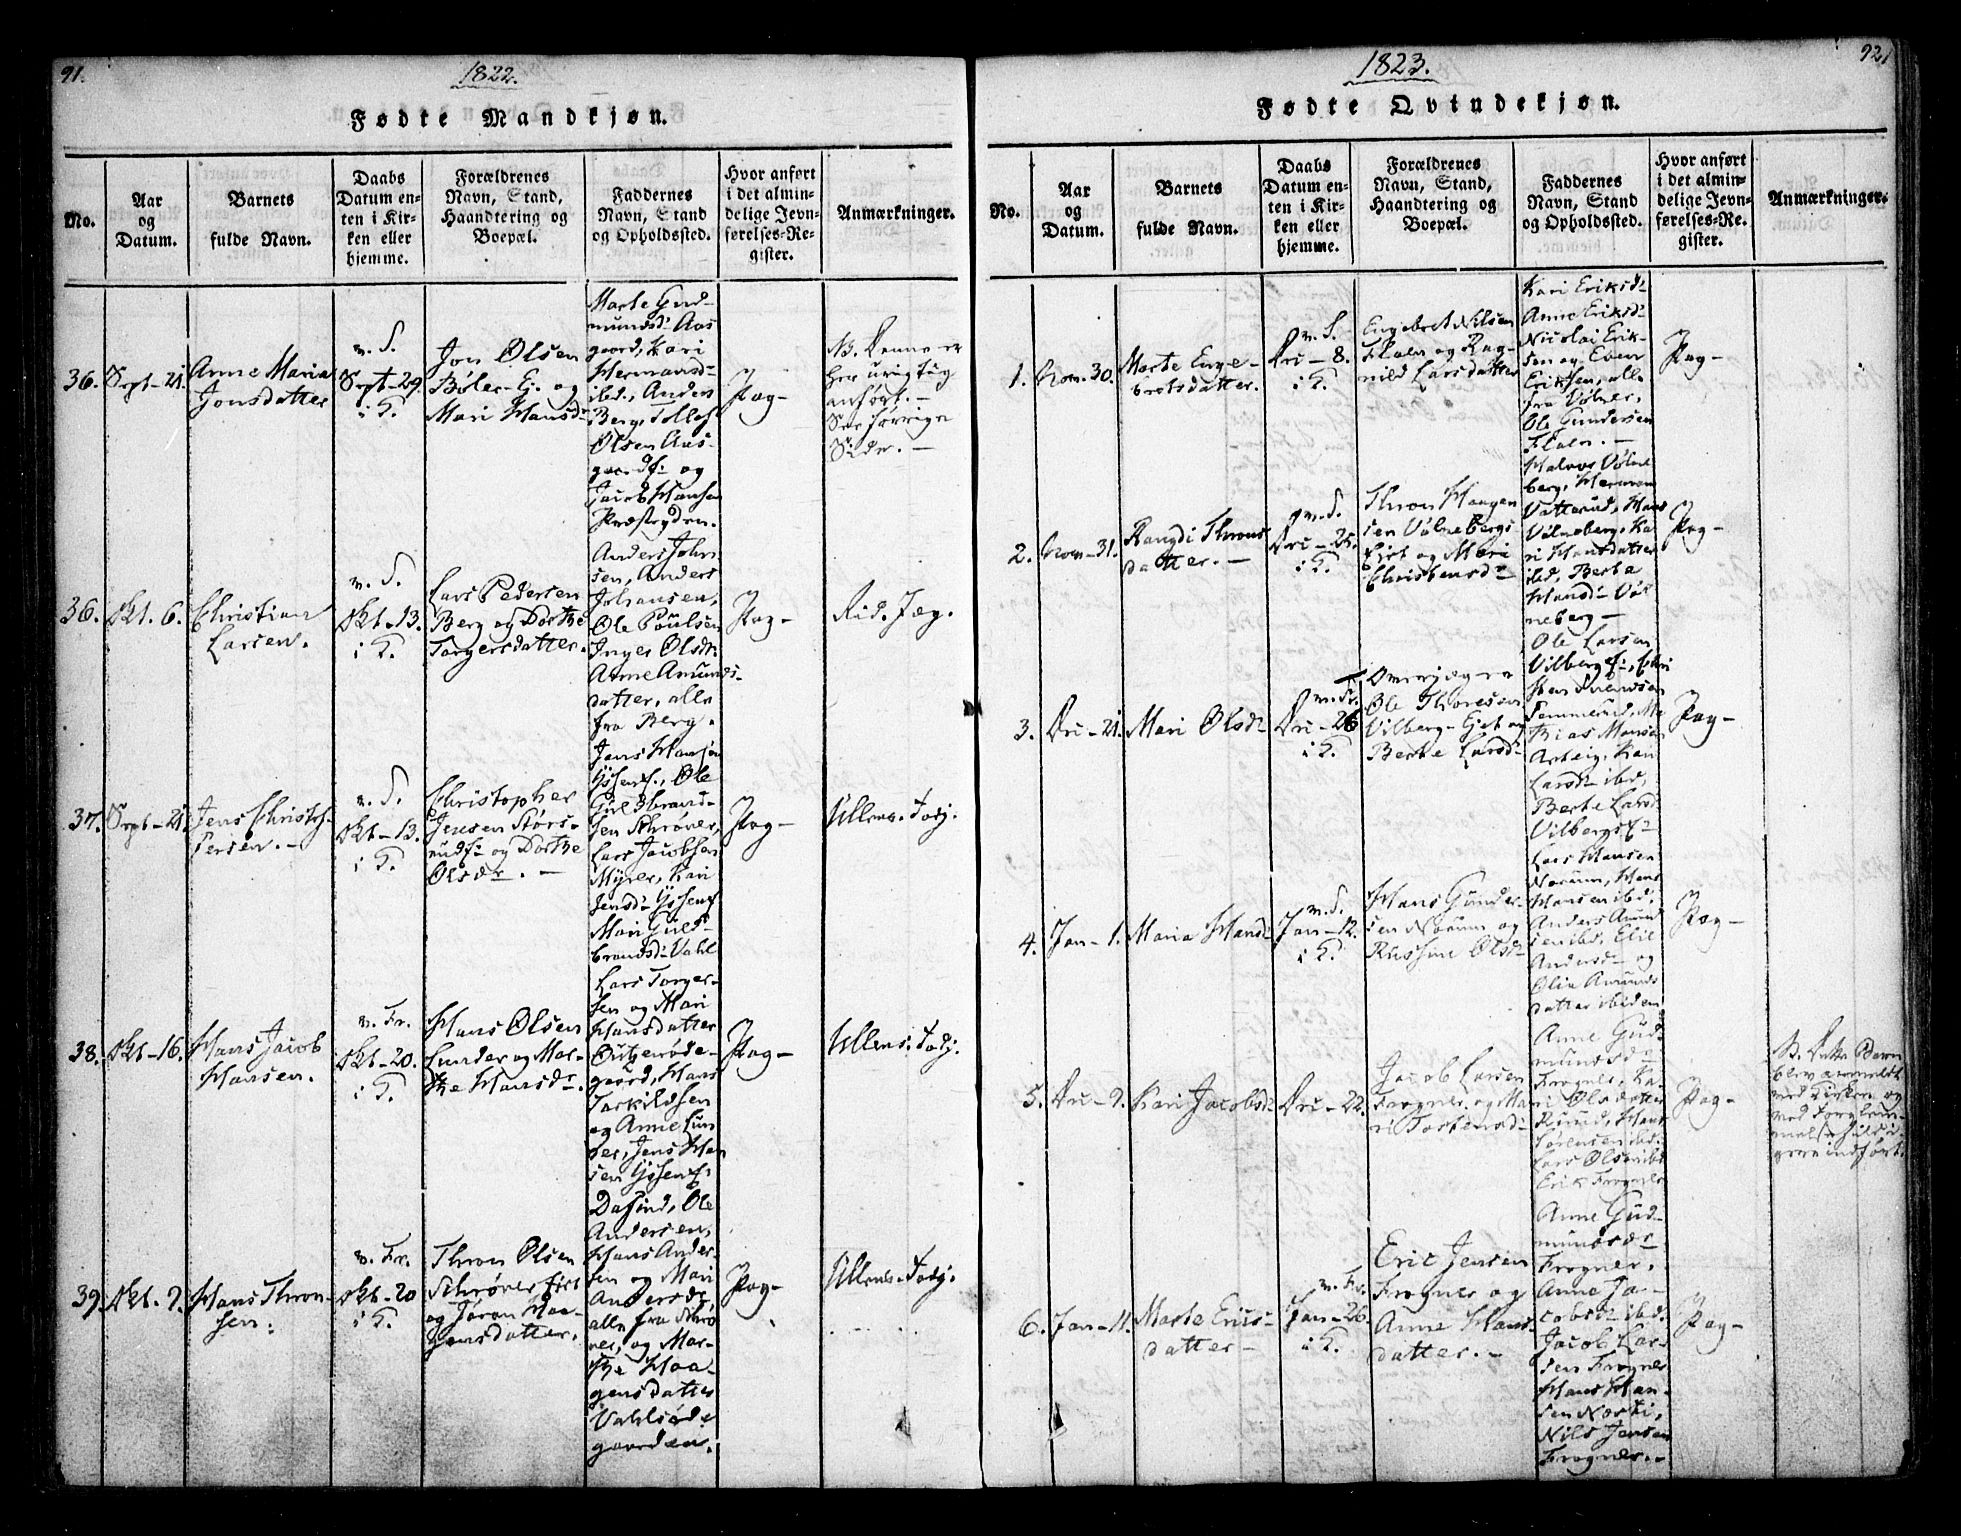 91.
1822.
Fødte Mandkjøn.
No.
Aar
og
Datum.
Barnets
fulde Navn.
Daabs
Datum en-
ten i Kir-
ken eller
hjemme.
Forældrenes
Navn, Stand,
Haandtering og
Boepæl.
Faddernes
Navn, Stand
og Opholdssted.
Hvor anført
i det almin-
delige Jevn-
førelses-Re-
gister.
Anmærkninger.
36.
Sept-21.
Anne Maria
Jonsdatter
Sept-29.
Jon Olsen
Bøler-E. og
Mari Hansd:
Marte Gud-
mundsd: Aas
gaard, Kari
Hermansd:
ibd., Anders
Berg, Tollef
Olsen Aas-
og
Jacob Hansen
Præstejden.
Pag-
NB. Denne er
her urigtig
anført.-
See forrige
Side.-
36.
Okt. 6.
Christian
Larsen.
Okt-13.
Lars Pedersen
Berg og Dorthe
Torgersdatter.
Anders John
sen, Anders
Johansen,
Ole Poulsen
Inger Olsdr.
Anne Amunds-
datter, alle
fra Berg.
Pag-
Rid. Jæg.
37.
Sept-21.
Jens Christof-
fersen.-
Okt-13.
Christopher
Jensen Størs-
rudf: og Dorthe
Olsdr.-
Jens Hansen
Ole
Guldbrand-
sen Schrøver,
Lars Jacobsen
Myrer, Kari
Jensd:
Mari Guld-
brandsd: Vahl
Pag-
Ullens. Tody.
38.
Okt-16.
Hans Jacob
Hansen.
v. Fr.
Okt-20.
Hans Olsen
Lunder og Mar-
the Hansdr.
Lars Torger-
sen og Mari
Hansdatter
gaard, Hans
Torkildsen
og Anne Lun
der, Jens Han
sen
Pag-
Ullens. Tody.
39.
Okt. 7.
Hans Thron-
sen.
v. Fr.
Okt-20
Thron Olsen
Schrøver
og Jøran Haa-
gensdatter.
Ole
Andersen,
Hans Ander-
sen og Mari
Andersdr,
alle fra Schrø
ver, og Mar-
the Haa-
gensdatter
Vahlsøde
gaarden.
Pag-
Ullens. Tody.
92.
1823.
Fødte Qvindekjøn.
No.
Aar
og
Datum.
Barnets
fulde Navn.
Daabs
Datum en-
ten i Kir-
ken eller
hjemme.
Forældrenes
Navn, Stand,
Haandtering og
Boepæl.
Faddernes
Navn, Stand
og Opholdssted.
Hvor anført
i det almin-
delige Jevn-
førelses-Re-
gister.
Anmærkninger.
1.
Nov. 30.
Marte Enge-
bretsdatter.
Dec-8.
Engebret Nilsen
og Rag-
nild Larsdatter
Kari Eriksd:
Anne Eriksd:
Nicolai Erik-
sen og Even
Eriksen, alle
fra Vølner,
Ole Gundersen
Pag-
2.
Nov-31.
Rangdi Throns
datter.-
Dec-25.
Thron Haagen
sen Vølneberg
Ejet og Mari
Christensd:
Halvor Vølne
berg, Herman
Vatterud, Hans
Vølneberg, Ka
ri Hansdatter
ibd, Berta
Hansd: Vøl
neberg-
Pag-
3.
Dec-21.
Mari Olsd:
Dec-26
Ole Thoresen
Vilberg-Ejet og
Berte Larsd:
Ole Larsen
Vilbergf:, Chri
sten Svendsen
Hemmerud, Ma
thias Monsen
Arteig, Kari
Larsd: ibd,
Berte Larsd
Vilbergsf:
Pag-
4.
Jan-1.
Maria Hansd:
Jan-12.
Hans Gunder-
sen Norum og
Russine Olsd:
Lars Hansen
Norum, Hans
Hansen ibd,
Anders Amund
sen ibd, Elie
Andersd: og
Olia Amunds
datter ibidem
Pag-
5.
Dec-9.
Kari Jacobsd:
Dec-22.
Jacob Larsen
Frogner og Ma
ri Torstensd:
Anne Gud-
mundsdr
Frogner, Ka-
ri Olsdatter
Ruud, Hans
Sørensen ibd.
Lars Olsen ibd
Erik Frogner
Pag-
NB. Dette Barn
blev anmeldt
ved Kirken og
ved Forglem-
melse
indført.
6.
Jan-11.
Marte Erics-
datter-
v. Fr.
Jan-26.
Eric Jensen
Frogner og
Anne Hans-
datter.-
Anne Gud-
mundsdr
Frogner,
Anne Ja-
cobsd: ibd.
Jacob Lar-
sen Frogner
Hans Han-
sen
Nils Jensen
Frogner.-
Pag-